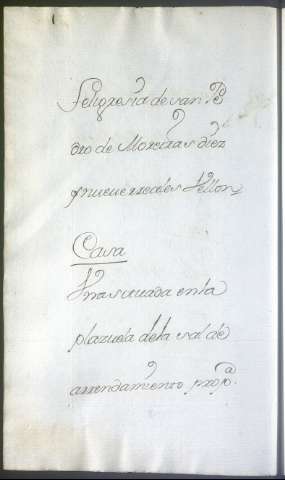 Feligresia de san Pe
dro de Moreiras diez
y nueve rreales Vellon
Casa
Vna situada en la
plazuela dela sal de
arrendamiento propa.